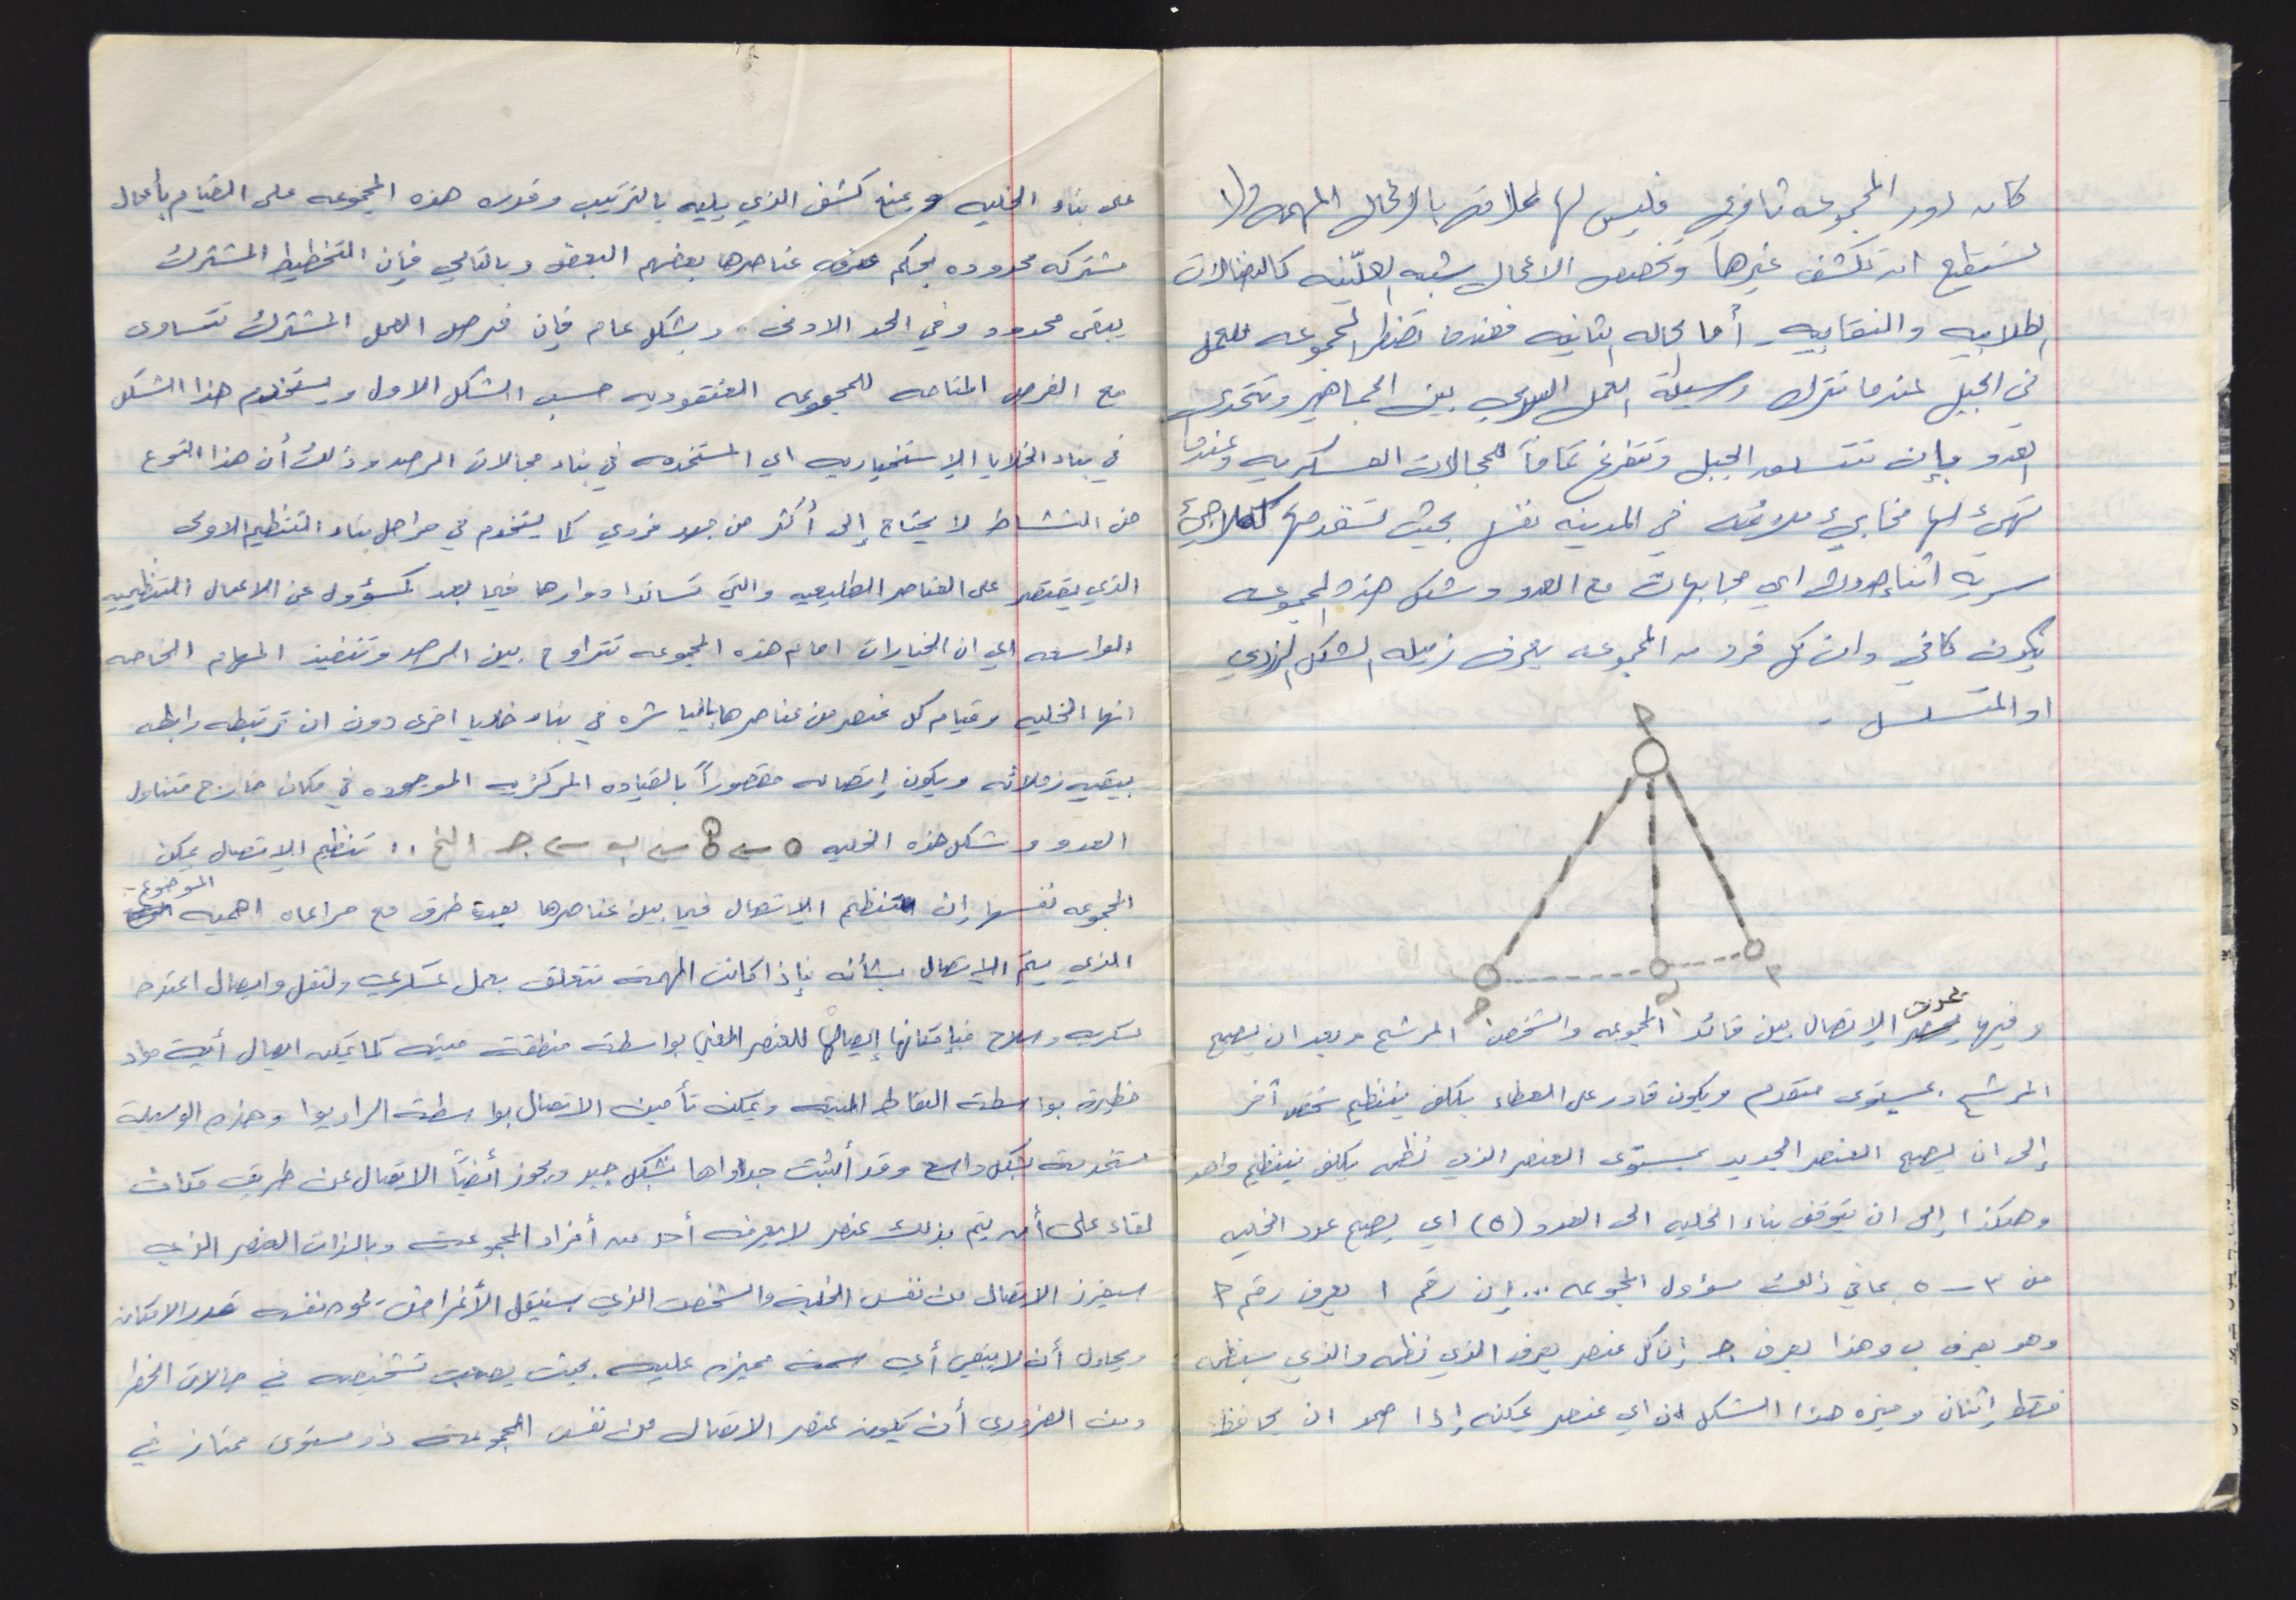 كان دور المجموعه ثانوي فليس لها علاقه بالاعمال المهمه ولا
تستطيع ان تكشف غيرها وتخصص الاعمال شبه العلّنيه كالنضالات
الطلابيه والنقابيه - أما الحاله الثانيه فعندما تضطر المجموعه للعمل
في الجبل عندما تترك وسيلة العمل السري بين الجماهير وتتحدى
العدو بإن تتسلق الجبل وتتفرغ تماماً للمجالات العسكريه وعندها
تهيئ لها مخابئ ملائمه في المدينه نفسها بحيث تستخدمها كملاجئ
سريه اثناء حدوث اي مجابهات مع العدو وشكل هذه المجموعه
يكون كافي وان كل فرد من المجموعه يعرف زميله الشكل الفردي
او المتسلسل -
م
م ب ج
وفيها يحدث الإتصال بين قائد المجموعه والشخص المرشح وبعد ان يصبح
المرشح بمستوى متقدم ويكون قادر على العطاء يكلف بتنظيم شخص آخر
إلى ان يصبح العنصر الجديد بمستوى العنصر الذي نظمه يكلف بتنظيم واحد
وهكذا إلى ان يتوقف بناء الخليه الى العدد (٥) اي يصبح عدد الخليه
من ٣ - ٥ بما في ذالك مسؤول المجموعه ... إن رقم ١ يعرف رقم ٢
وهو يعرف ب وهذا يعرف جـ إن كل عنصر يعرف الذي نظمه والذي سينظمه
فقط إثنان وميزه هذا الشكل ان اي عنصر يمكنه إذا صمد ان يحافظ
على بناء الخليه ويمنع كشف الذي يليه بالترتيب وقدره هذه المجموعه على القيام بأعمال
مشتركه محدوده بحكم معرفه عناصرها بعضهم البعض وبالتالي فإن التخطيط المشترك
يبقى محدود وفي الحد الادنى . وبشكل عام فإن فرص العمل المشترك تتساوى
مع الفرص المتاحه للمجموعه العنقوديه حسب الشكل الاول ويستخدم هذا الشكل
في بناء الخلايا الإستخباريه اي المستخدمه في بناء مجالات الرصد وذالك أن هذا النوع
من النشاط لا يحتاج إلى أكثر من جهد فردي كما يستخدم في مراحل بناء التنظيم الاولى
الذي يقتصر على العناصر الطليعيه والتي تساندا دوارها فيما بعد كمسؤول عن الاعمال التنظيميه
الواسعه اي ان الخيارات امام هذه المجموعه تتراوح بين الرصد وتنفيذ المهام الخاصه
انها الخليه وقيام كل عنصر من عناصرها بالمباشره في بناء خلايا اخرى دون ان تربطه رابطه
ببقيه زملائه ويكون إتصاله مقصوراً بالقياده المركزيه الموجوده في مكان خارج متناول
العدو وشكل هذه الخليه ب جـ الخ .. تنظيم الإتصال يمكن
المجموعه نفسها إن تنظيم الإتصال فيما بين عناصرها بعدة طرق مع مراعاه اهميه الموضوع
الذي يتم الإتصال بشأنه فإذا كانت المهمة تتعلق بعمل عسكري ولنقل وايصال اعتده
عسكريه وسلاح فبإمكانها إيصالها للعنصر المعني بواسطة منطقة ميته كما يمكن ايصال أية مواد
خطيرة بواسطة النقاط الميته ويمكن تأمين الاتصال بواسطة الراديوا وهذه الوسيلة
مستخدمة بشكل واسع وقد أثبتت جدواها بشكل جيد ويجوز أيضاً الاتصال عن طريق مكان
لقاء على أن يتم بذلك عنصر لا يعرفه أحد من أفراد المجموعة وبالذات العنصر الذي
سيفرز الاتصال من نفس الخلية والشخص الذي سينقل الأغراض يموه نفسه بقدر الامكان
ويحاول أن لا يبقي أي سمة مميزه عليه بحيث يصعب تشخيصه في حالات الخطر
ومن الضروري أن يكون عنصر الاتصال من نفس المجموعة ذو مستوى ممتاز في